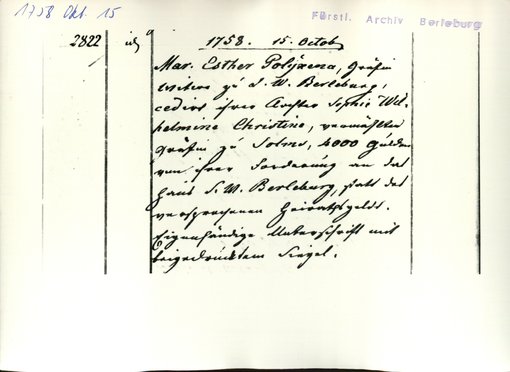 1758 Okt. 15
Fürstl. Archiv Berleburg
2822
1758. 15. Octob
Mar. Esther Polijxena, Gräfin
Witwe zu S. W. Berleburg,
cedirt ihrer Tochter Sophie Wil-
helmine Christine, vermählten
Gräfin zu Solms, 4000 Gulden
von ihrer Forderung an das
Haus S. W. Berleburg, statt des
versprochenen Heirathsgelds.
Eigenhändige Unterschrift mit
beigedrücktem Siegel.